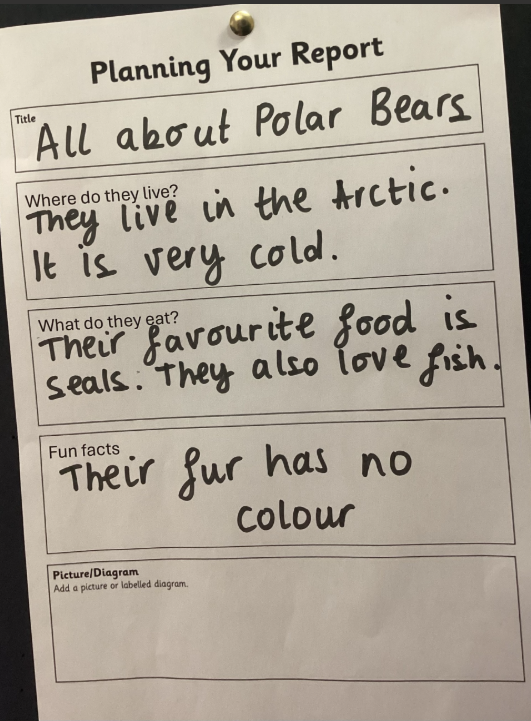 Planning Your Report
Title
All about Polar Bears
Where do they live?
They live in the Arctic.
It is very cold.
What do they eat?
Their favourite food is
seals. They also love fish.
Fun facts
Their fur has no
colour
Picture/Diagram
Add a picture or labelled diagram.